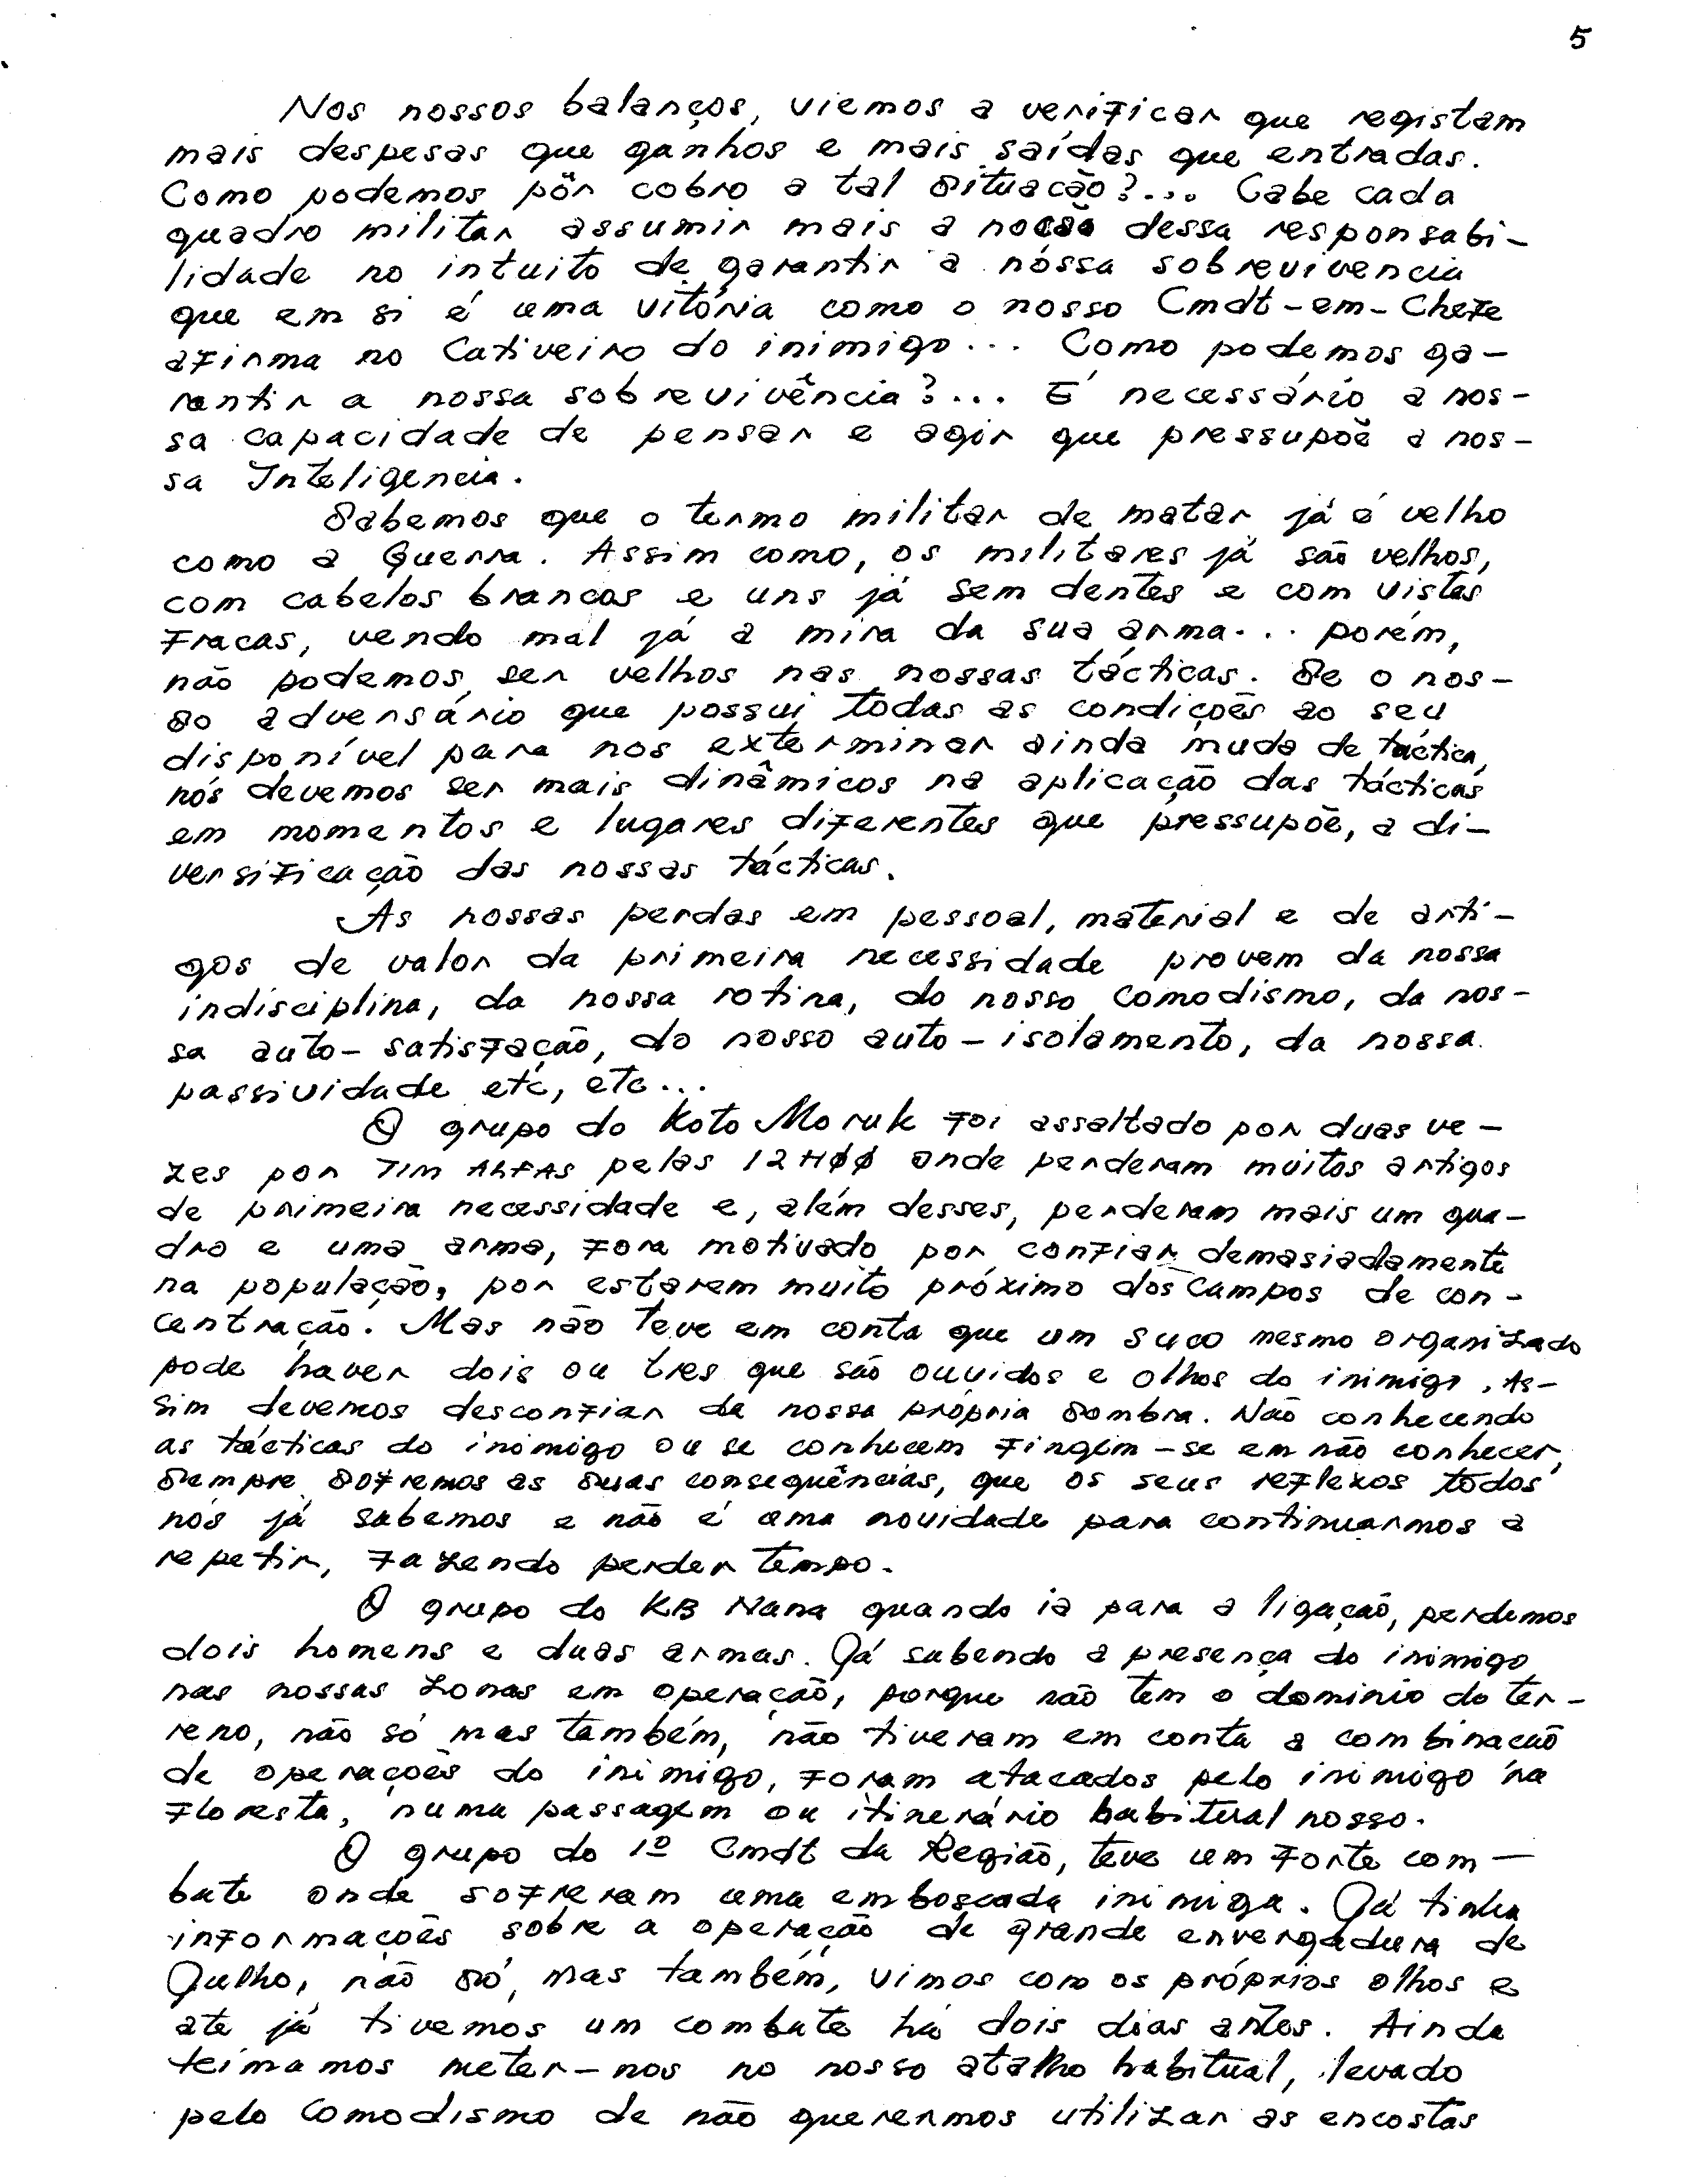 5
Nos nossos balanços, viemos a verificar que registam
mais despesas que ganhos e mais saídas que entradas.
Como podemos pôr cobro a tal situacão?... Cabe cada
quadro militar assumir mais a nocão dessa responsabi-
lidade no intuito de garantir a nossa sobrevivencia
que em si é uma vitória como o nosso Cmdt-em-Chefe
afirma no Cativeiro do inimigo... Como podemos ga-
rantir a nossa sobrevivência?... É necessário a nos-
sa capacidade de pensar e agir que pressupoẽ a nos-
sa Inteligencia.
Sabemos que o termo militar de matar já é velho
como a Guerra. Assim como, os militares já são velhos,
com cabelos brancos e uns já sem dentes e com vistas
fracas, vendo mal já a mira da sua arma... porém,
não podemos ser velhos nas nossas tácticas. Se o nos-
so adversário que possui todas as condições ao seu
disponível para nos exterminar ainda muda de táctica,
nós devemos ser mais dinâmicos na aplicação das tácticas
em momentos e lugares diferentes que pressupoẽ, a di-
versificação das nossas tácticas.
As nossas perdas em pessoal, material e de arti-
gos de valor da primeira necessidade provem da nossa
indisciplina, da nossa rotina, do nosso comodismo, da nos-
sa auto-satisfação, do nosso auto-isolamento, da nossa
passividade etc, etc...
O grupo do Koto Moruk foi assaltado por duas ve-
zes por TIM ALFAS pelas 12H00 onde perderam muitos artigos
de primeira necessidade e, além desses, perderam mais um qua-
dro e uma arma, fora motivado por confiar demasiadamente
na população, por estarem muito próximo dos campos de con-
centração. Mas não teve em conta que um suco mesmo organizado
pode haver dois ou tres que são ouvidos e olhos do inimigo. As-
sim devemos desconfiar da nossa própria sombra. Não conhecendo
as tácticas do inimigo ou se conhecem fingem-se em não conhecer,
sempre sofremos as suas consequências, que os seus reflexos todos
nós já sabemos e não é uma novidade para continuarmos a
repetir, fazendo perder tempo.
O grupo do KB Nana quando ia para a ligação, perdemos
dois homens e duas armas. Já sabendo a presença do inimigo
nas nossas zonas em operação, porque não tem o dominio do ter-
reno, não só mas também, não tiveram em conta a combinacão
de operações do inimigo, foram atacados pelo inimigo na
floresta, numa passagem ou itinerário habitual nosso.
O grupo do 1º Cmdt da Região, teve um forte com-
bate onde sofreram uma emboscada inimiga. Já tinha
informacoẽs sobre a operação de grande envergadura de
Julho, não só, mas também, vimos com os próprios olhos e
ate já tivemos um combate há dois dias antes. Ainda
teimamos meter-nos no nosso atalho habitual, levado
pelo comodismo de não querermos utilizar as encostas